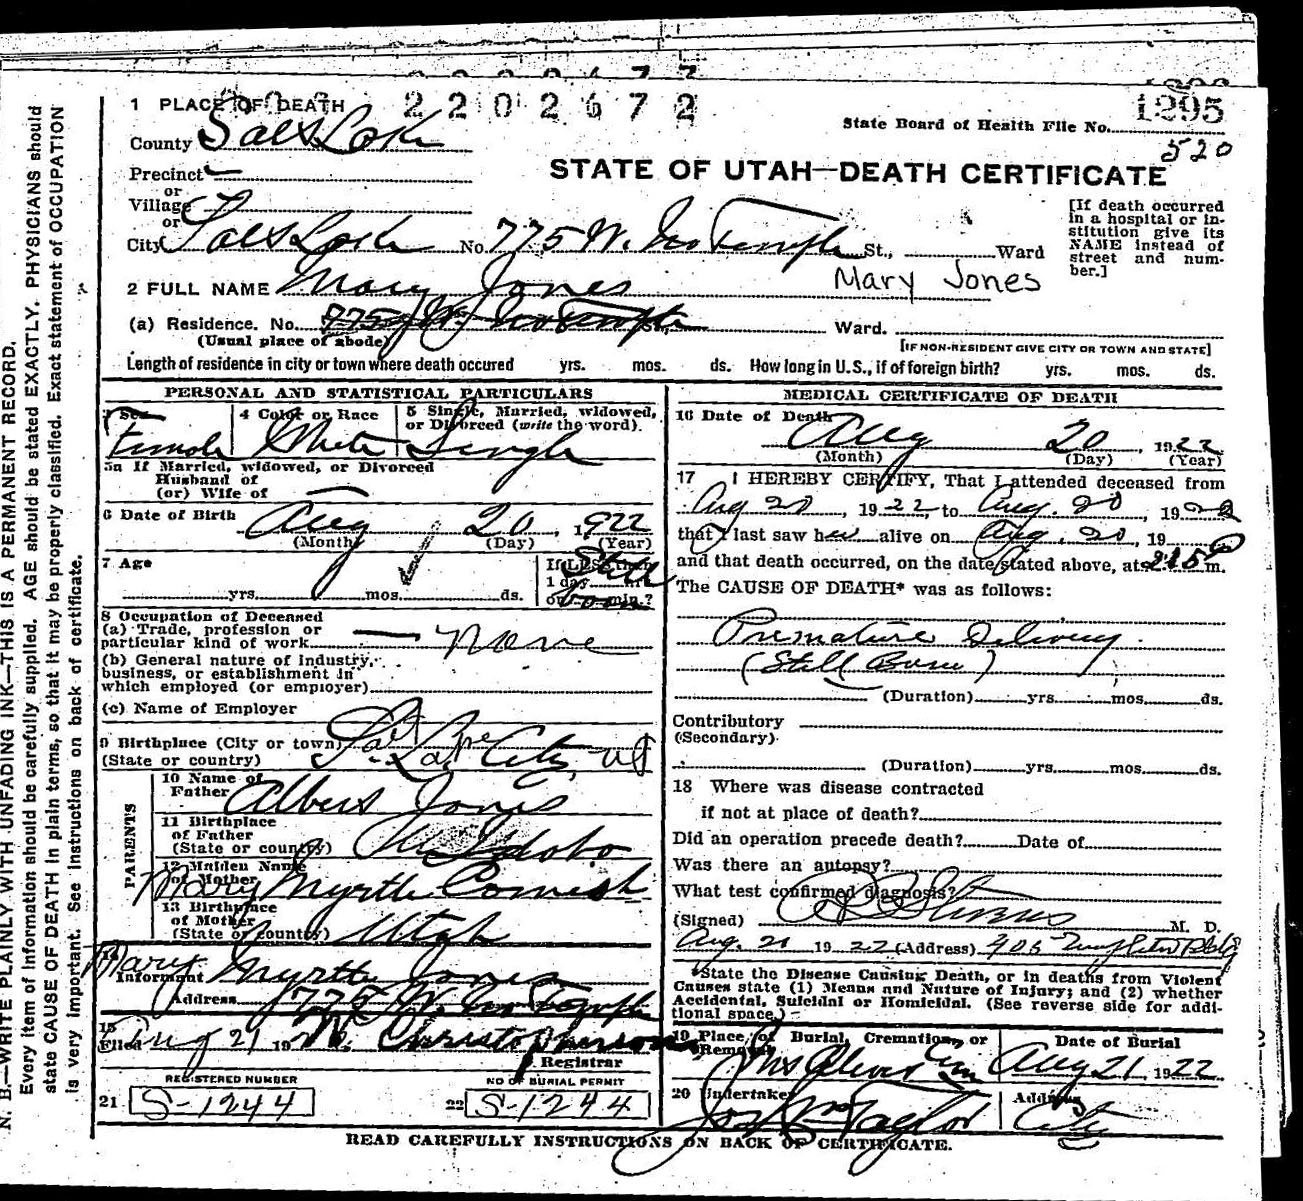 2202672
1295
1 PLACE OF DEATH
State Board of Health File No.
520
County Salt Lake
STATE OF UTAH—DEATH CERTIFICATE
Precinct
or
Village
or
City Salt Lake No. 775 W. No Temple St., Ward
[If death occurred
in a hospital or in-
stitution give its
NAME instead of
street and num-
ber.]
2 FULL NAME Mary Jones Mary Jones
(a) Residence. No. 775 W. No Temple St., Ward.
(Usual place of abode)
[IF NON-RESIDENT GIVE CITY OR TOWN AND STATE]
Length of residence in city or town where death occured yrs. mos. ds. How long in U.S., if of foreign birth? yrs. mos. ds.
PERSONAL AND STATISTICAL PARTICULARS
3 Sex 4 Color or Race 5 Single, Married, widowed,
or Divorced (write the word).
Female White Single
5a If Married, widowed, or Divorced
Husband of
(or) Wife of
6 Date of Birth Aug 20, 1922
(Month) (Day) (Year)
7 Age
yrs. mos. ds.
If LESS than
1 day hrs.
or min.?
Still
born
8 Occupation of Deceased
(a) Trade, profession or
particular kind of work None
(b) General nature of Industry,
business, or establishment in
which employed (or employer)
(c) Name of Employer
9 Birthplace (City or town)
(State or country) Salt Lake City, Ut
PARENTS
10 Name of
Father Albert Jones
11 Birthplace
of Father
(State or country) Idaho
12 Maiden Name
of Mother Mary Myrtle Cornish
13 Birthplace
of Mother
(State or country) Utah
14
Informant Mary Myrtle Jones
Address 775 W. No Temple
15
Filed Aug 21 19 22 M. Christopherson
Registrar
REGISTERED NUMBER NO OF BURIAL PERMIT
21 S-1244 22 S-1244
MEDICAL CERTIFICATE OF DEATH
16 Date of Death Aug 20, 1922
(Month) (Day) (Year)
17 I HEREBY CERTIFY, That I attended deceased from
Aug 20, 1922, to Aug. 20, 1922
that I last saw her alive on Aug. 20, 19
and that death occurred, on the date stated above, at 2:15 P m.
The CAUSE OF DEATH* was as follows:
Premature Delivery
(Still Born)
(Duration) yrs. mos. ds.
Contributory
(Secondary)
(Duration) yrs. mos. ds.
18 Where was disease contracted
if not at place of death?
Did an operation precede death? Date of
Was there an autopsy?
What test confirmed diagnosis?
(Signed) M. D.
Aug. 21 1922 (Address) 405
*State the Disease Causing Death, or in deaths from Violent
Causes state (1) Means and Nature of Injury; and (2) whether
Accidental, Suicidal or Homicidal. (See reverse side for addi-
tional space.)
19 Place of Burial, Cremation, or
Removal Mt Olivet Cem
Date of Burial
Aug 21 1922
20 Undertaker Jos Wm Taylor
Address City
READ CAREFULLY INSTRUCTIONS ON BACK OF CERTIFICATE.
N. B.—WRITE PLAINLY WITH UNFADING INK—THIS IS A PERMANENT RECORD.
Every item of information should be carefully supplied. AGE should be stated EXACTLY. PHYSICIANS should
state CAUSE OF DEATH in plain terms, so that it may be properly classified. Exact statement of OCCUPATION
is very important. See instructions on back of certificate.